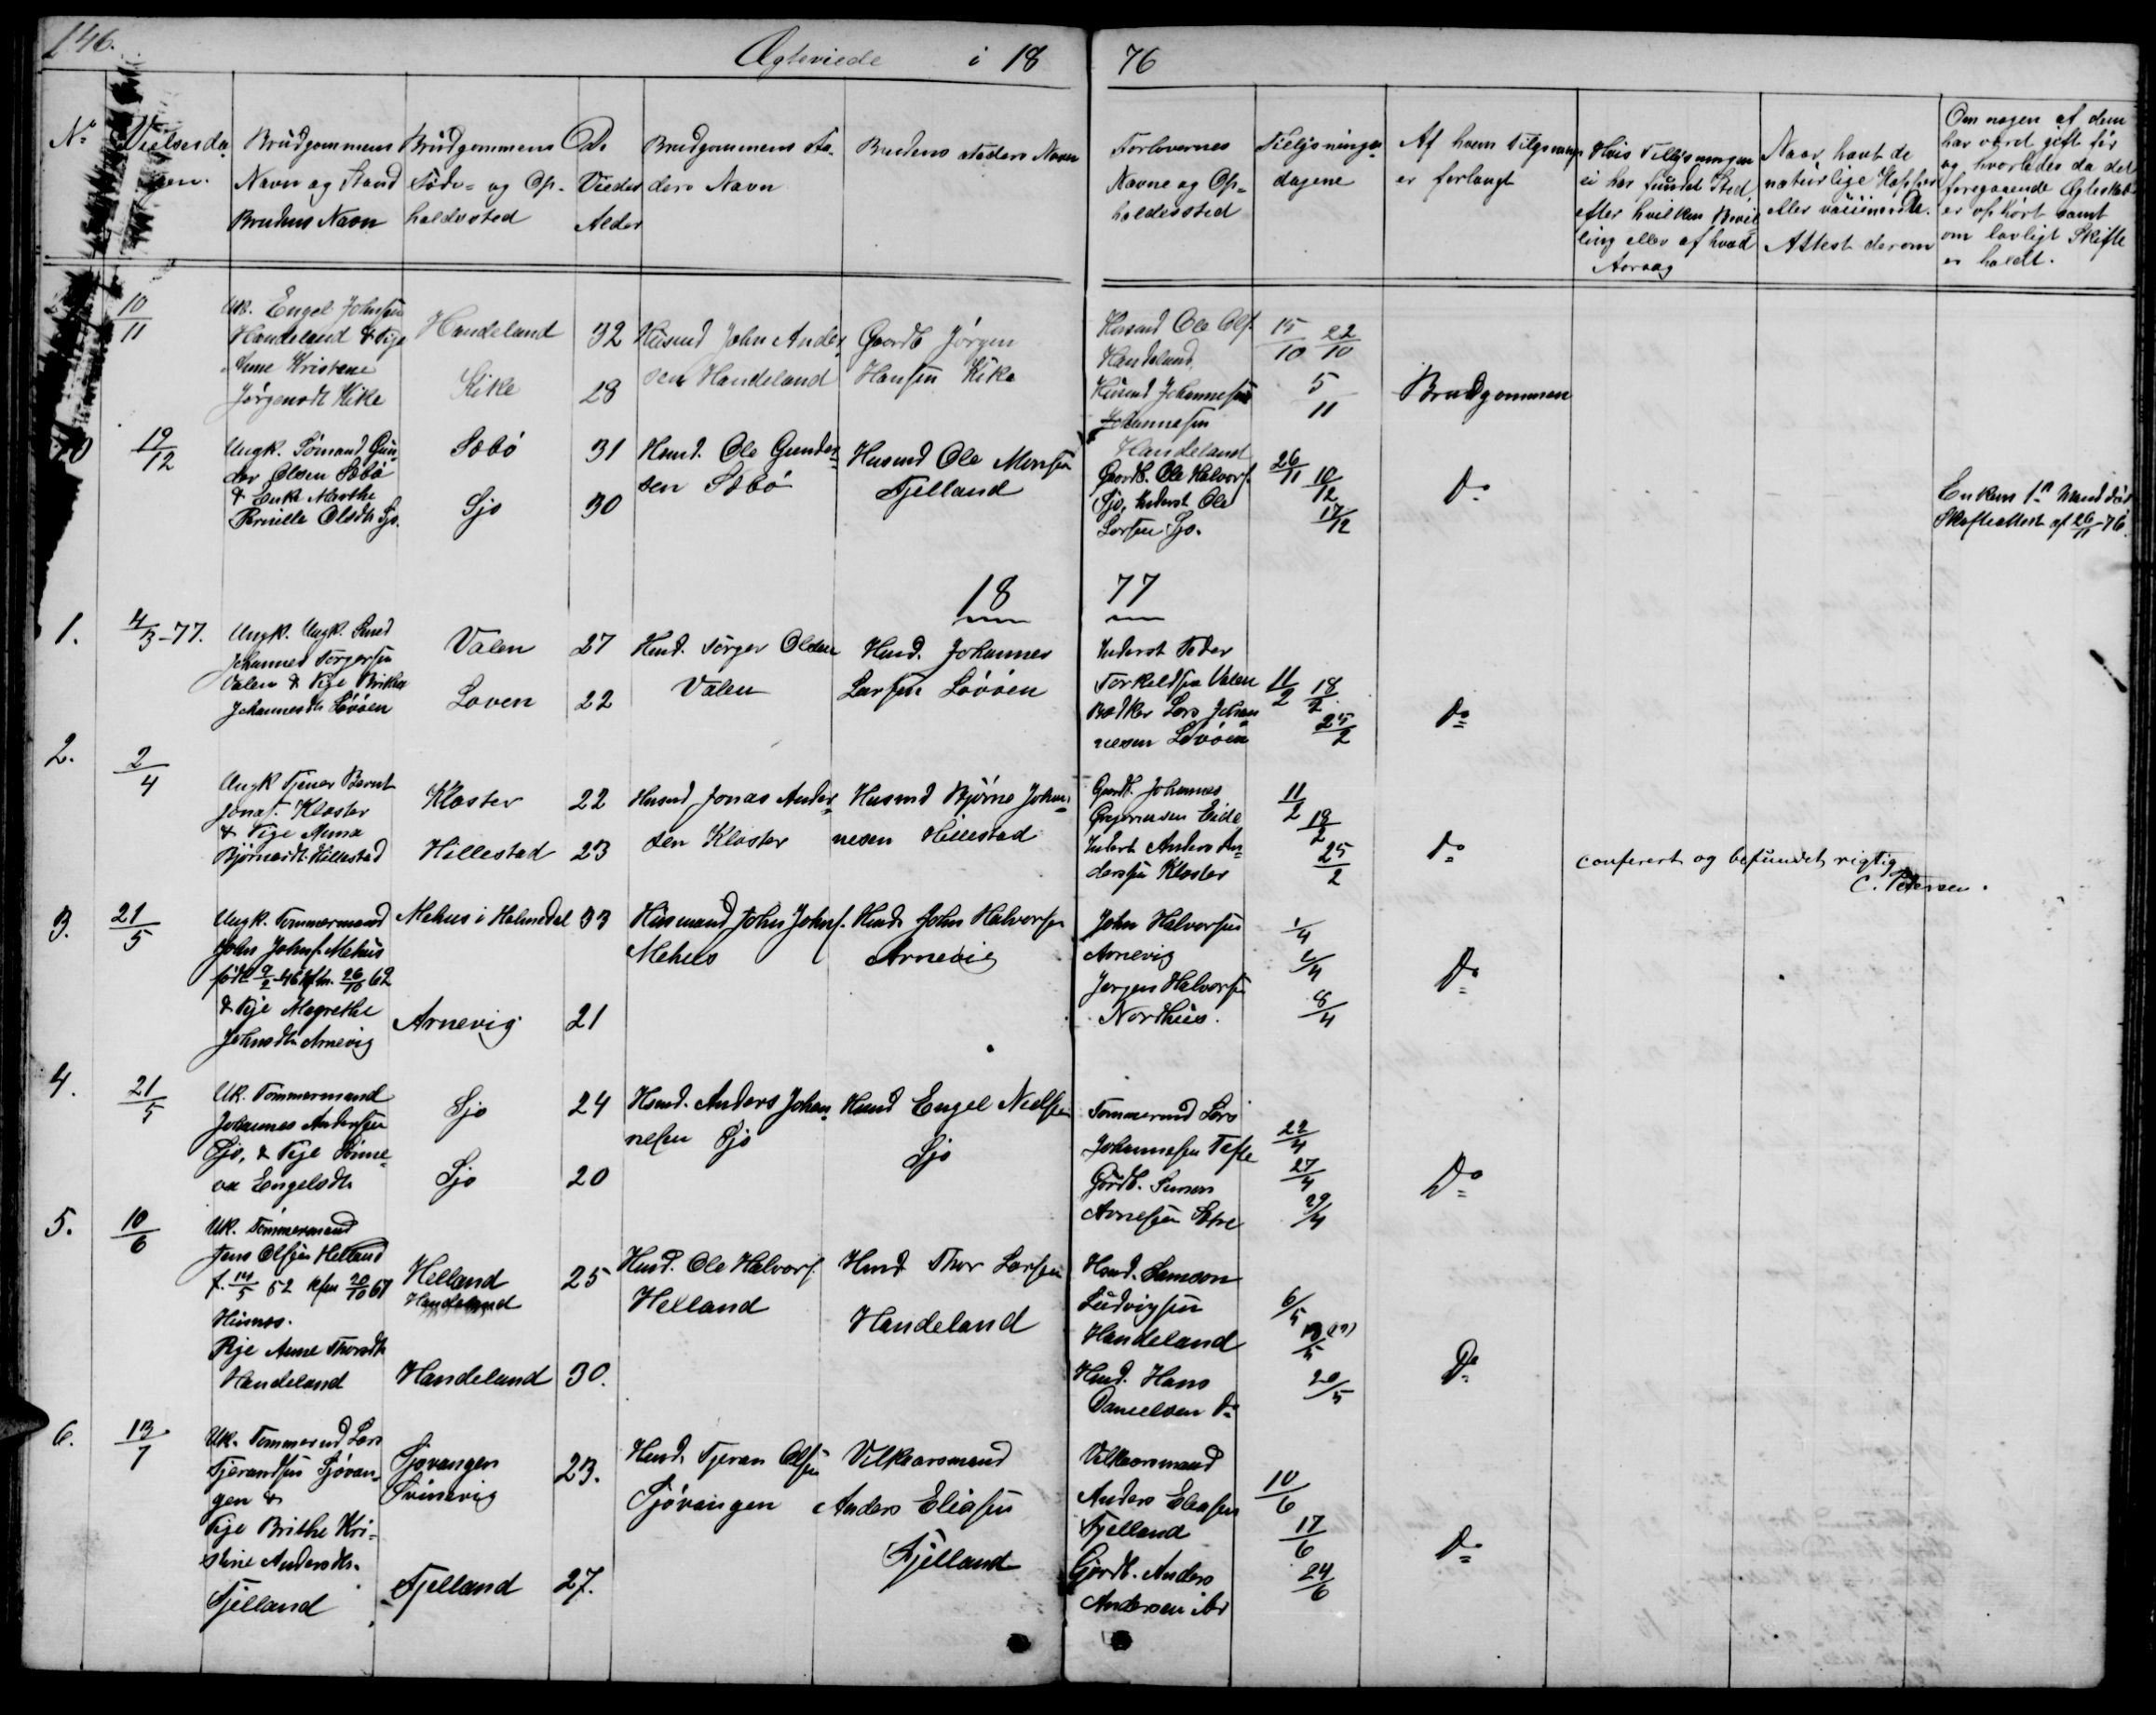 146.
Ægteviede i 18 76
No
Vielsesda-
gen.
Brudgommens
Navn og Stand
Brudens Navn
Brudgommens
Føde- og Op-
holdssted
De
Viedes
Alder
Brudgommens Fa-
ders Navn
Brudens Faders Navn
Forlovernes
Navne og Op-
holdssted
Tillysnings-
dagene
Af hvem Tillysning
er forlangt
Hvis Tillysningen
ei har fundet Sted
efter hvilken Bevil
ling eller af hvad
Aarsag
Naar havt de
naturlige Kopper
eller vaccinerede.
Attest derom
Om nogen af dem
har været gift før
og hvorledes da det
foregaaende Ægteskab
er ophört samt
om lovligt Skifte
er holdt.
10/11
Uk. Engel Johnsen
Handeland & Pige
Anne Kristene
Jørgensdt Kikle
Handeland
Kikle
32
28
Husmd John Ander
sen Handeland
Gaardb Jørgen
Hansen Kikle
Husmd Ole Ols.
Handeland
Husmd Johannes
Johannesen
Handeland
15/10 22/10
5/11
Brudgommen
10
19/12
Ungk. Sömand Gun-
der Olsen Sæbö
& Enke Marthe
Pernille Olsdt. Sjo.
Sæbö
Sjo
31
30
Hsmd. Ole Gunder-
sen Sæbö
Husmd Ole Monsen
Fjelland
Gaardb. Ole Halvors.
Sjo, Inderst Ole
Larsen Sjo.
26/11 10/12
17/12
Do
Enkens 1n Mand död
Skifteattest af 26/11-76.
18 77
1.
4/3-77.
Ungk. Ungk. Smed
Johannes Torgersen
Valen & Pige Brithe
Johannesdt. Lövöen
Valen
Loven
27
22
Hmd. Torger Olsen
Valen
Hmd. Johannes
Larsen Lövöen
Inderst Peder
Torkeldsen Valen
Bødker Lars Johan
nesen Lövöen
11/2 18/2
25/2
Do
2.
2/4
Ungk Tjener Bernt
Jonas. Kloster
& Pige Anna
Björnsdt. Hillestad
Kloster
Hillestad
22
23
Husmd Jonas Ander-
sen Kloster
Husmd Björne Johan-
nesen Hillestad
Gaardb. Johannes
Eide
Inderst Anders An-
dersen Kloster
11/2
18/2
25/2
Do
Conferert og befundet rigtig
C. Petersen.
3.
21/5
Ungk. Tømmermand
John Johns. Mehus
födt 9/2-46 kfm. 26/10 62
& Pige Magrethe
Johnsdt. Arnevig
Mehus i Holmedal
Arnevig
33
21
Husmand John Johns.
Mehus
Hmd. John Halvorsen
Arnevig
John Halvorsen
Arnevig
Jørgen Halvorsen
Nordhus.
1/4
2/4
8/4
Do
4.
21/5
Uk. Tømmermand
Johannes Andersen
Sjo, & Pige Sinne-
va Engelsdt.
Sjo
Sjo
24
20
Hsmd. Anders Johan-
nesen Sjo
Hsmd Engel Nielsen
Sjo
Tømmermd Lars
Johannesen Tefte
Gordb. Simon
Arnesen Sætre
22/4
27/4
29/4
Do
5.
10/6
Uk. Tømmermand
Jens Olsen Helland
f. 14/5 52 kfm 20/10 67
Pige Anne Thorsdt.
Handeland
Helland
Handeland
Handeland
25
30.
Hmd. Ole Halvors.
Helland
Hmd Thor Larsen
Handeland
Hsmd. Samson
Ludvigsen
Handeland
Hmd. Hans
Danielsen Do
6/5
13/5
20/5
Do
6.
13/7
Uk. Tømmermd Lars
Tjerandsen Sjövan-
gen &
Pige Brithe Kri-
stine Andersdt.
Fjelland
Sjøvangen
Svinevig
Fjelland
23.
27.
Hmd. Tjeran Olsen
Sjövangen
Vilkaarsmand
Anders Eliasen
Fjelland
Vilkaarsmand
Anders Eliasen
Fjelland
Gjordb. Anders
Andersen
10/6
17/6
24/6
Do